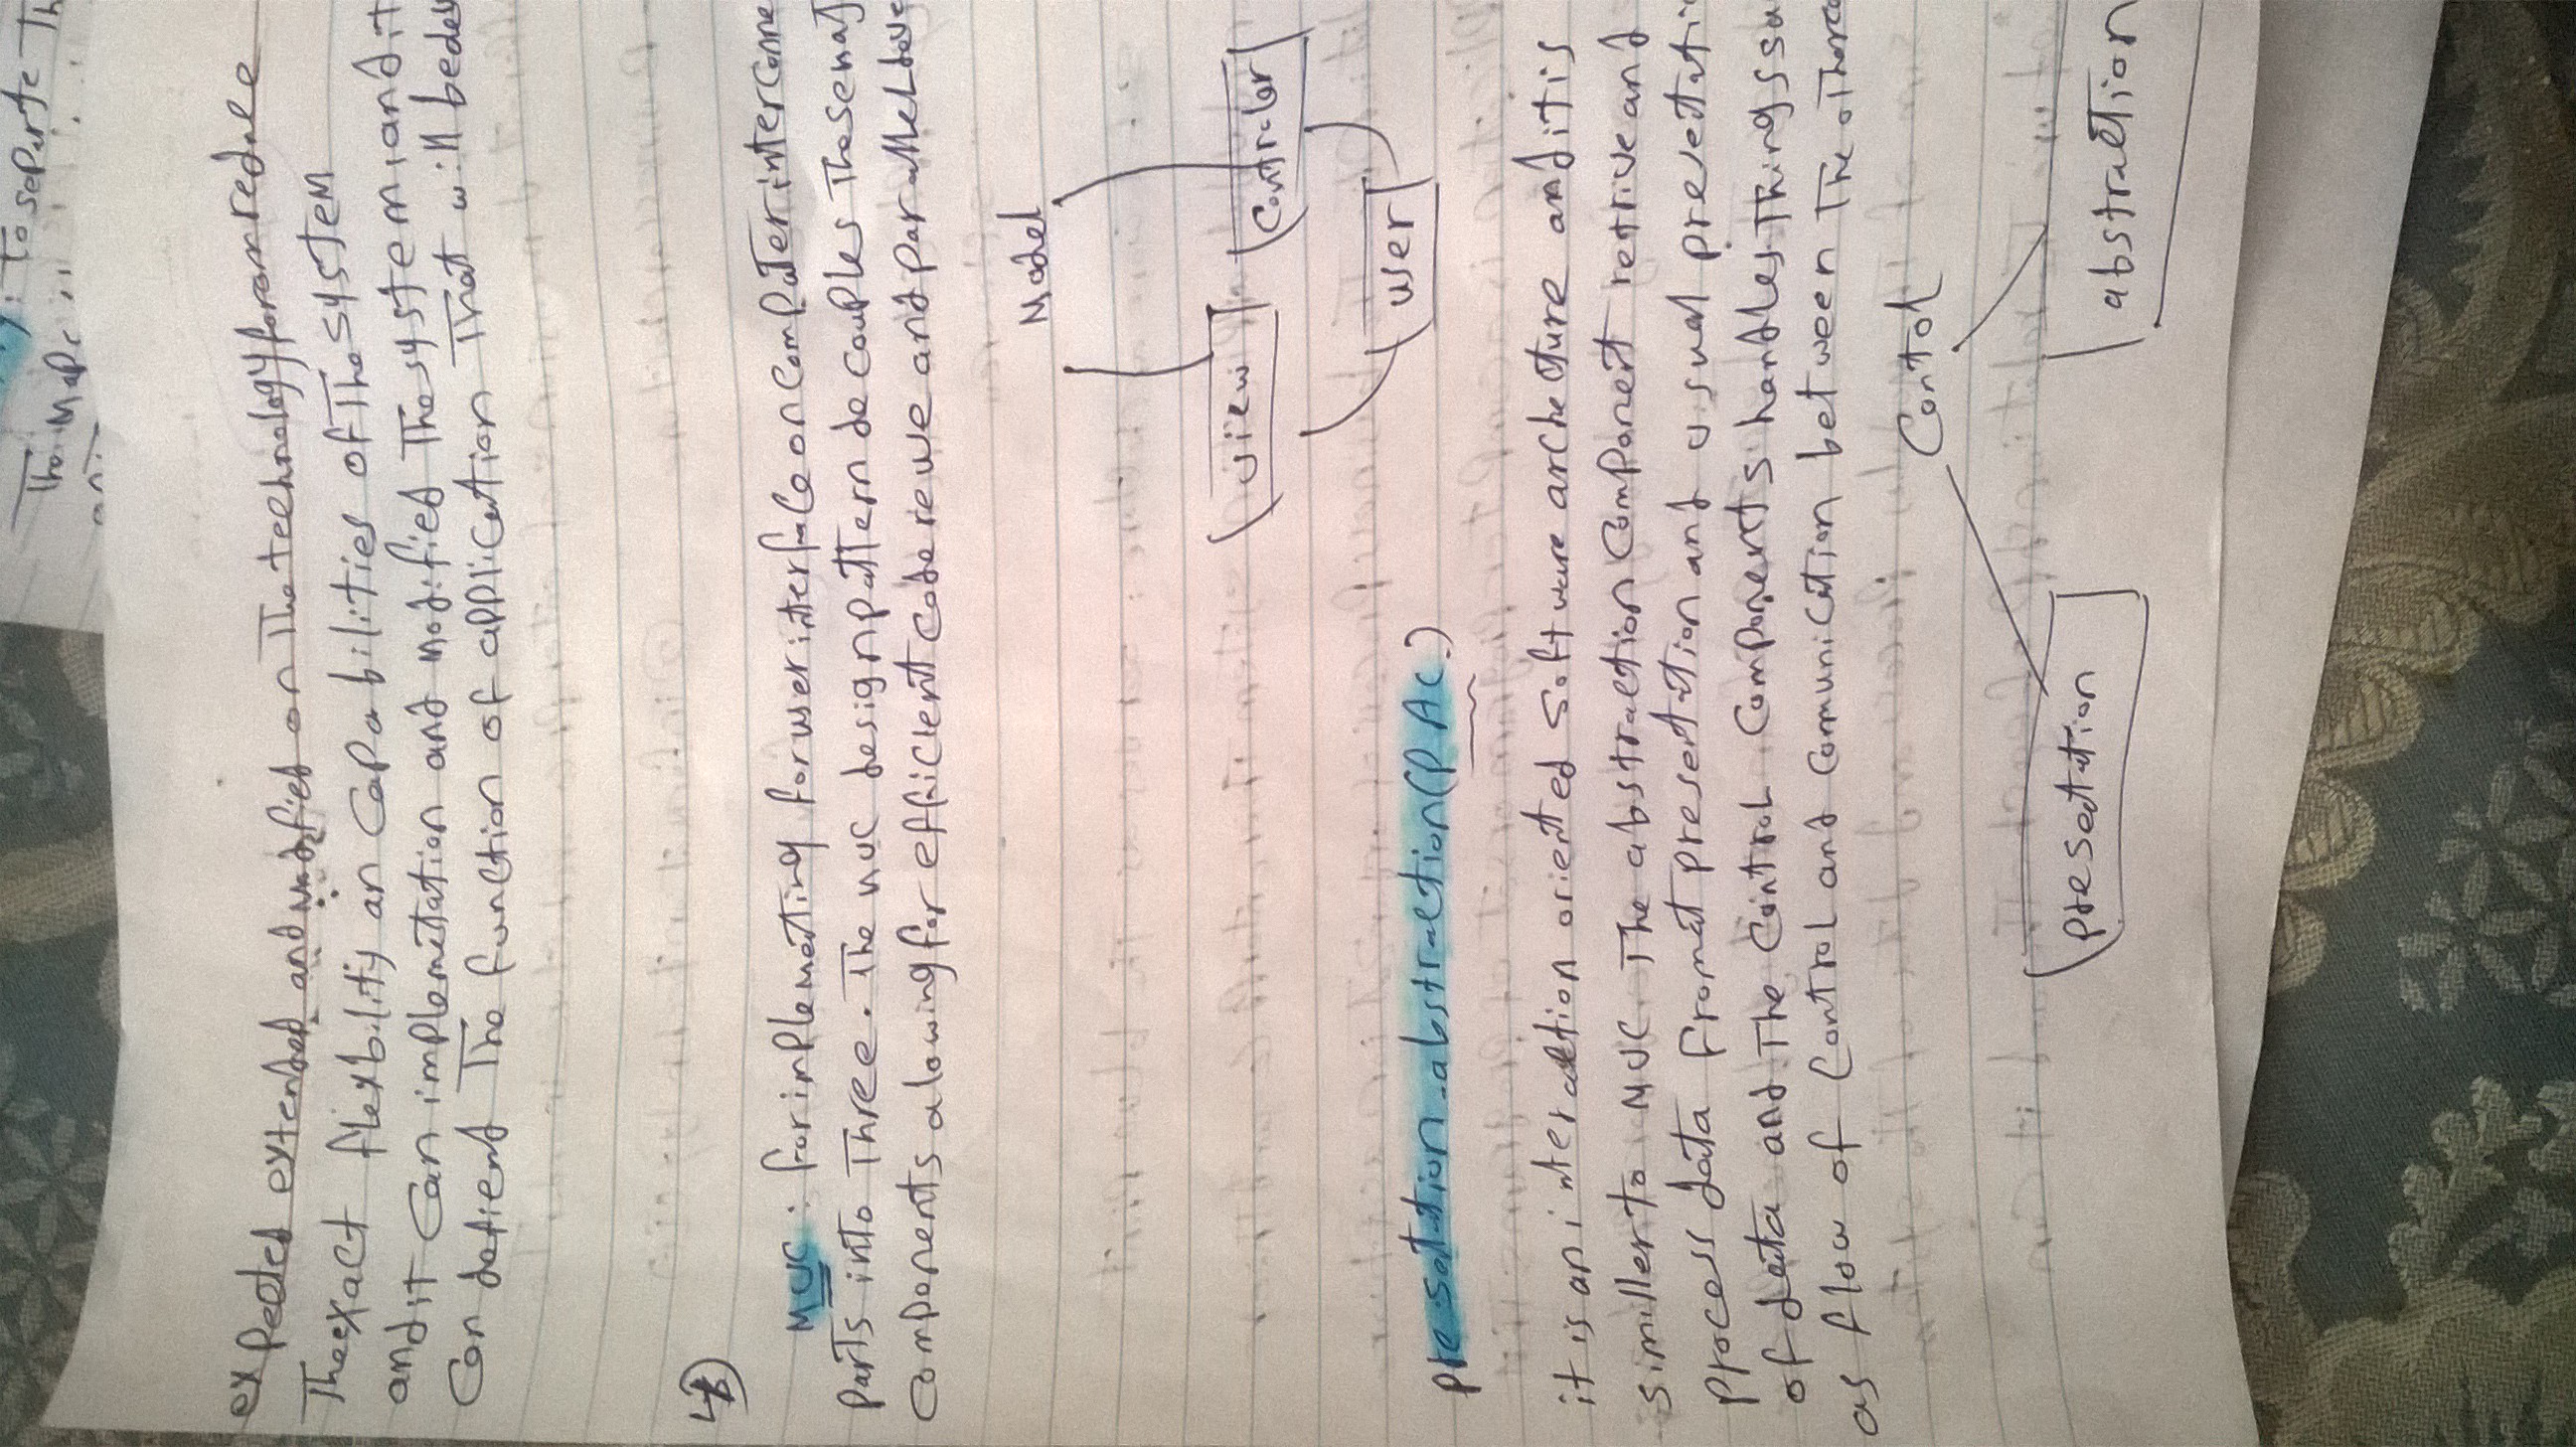 : To seperte Th
The Mapc
expected extended and modfied on The technology
The exact flexbility an capabilities of The system
and it can implemetation and modified The system, and it
can defiend The function of application That will bedev
4
MVC : for implemeting for user interface on compater interconne
parts into Three. The mvc design pattern de couples These maj
components alowing for efficient code reuse and parallel deve
Model
view
Controler
user
presetation abstraction (PAC.)
it is an interaction oriented software archecture and it is
simillerto MVC. The abstraction component retrive and
process data fromat presentation and visual presentati
of data and The control components handles Things su
as flow of control and comunication between The otherco
Contol
presetation
abstraction